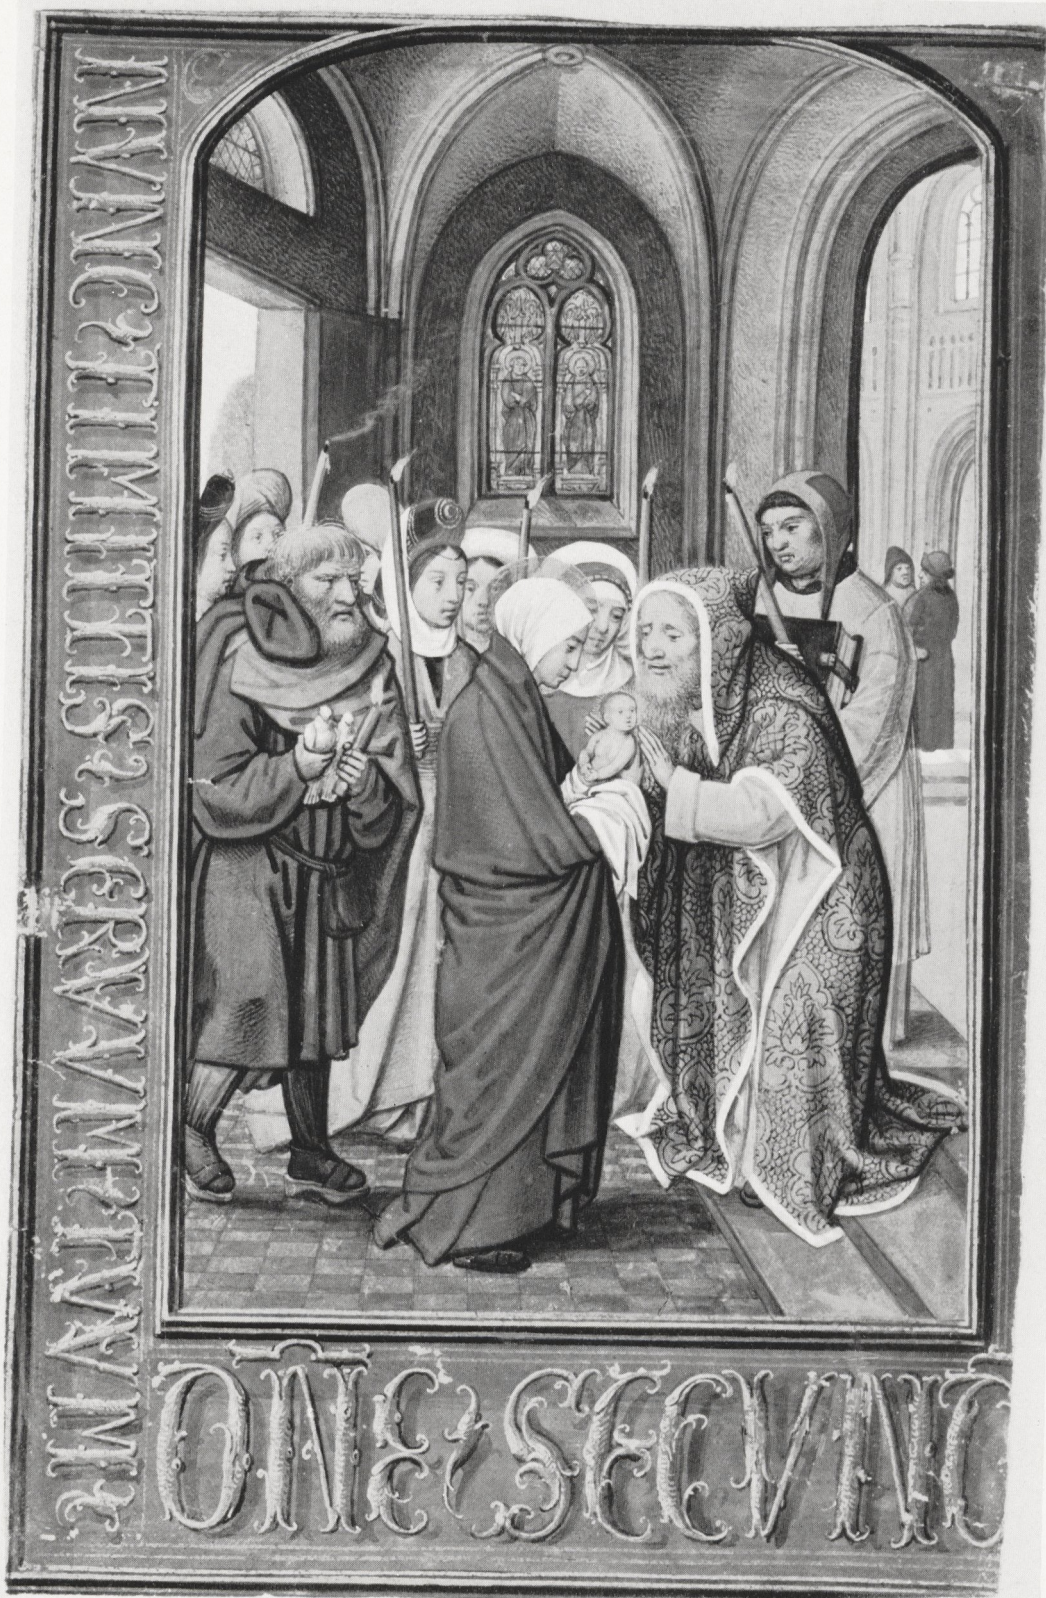 NVNC DIMITTIS SERVVM TVVM
DÑE SECVND